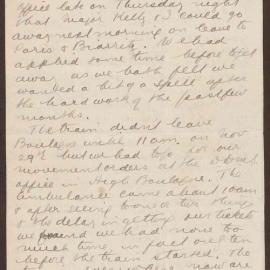 office late on Thursday night
that Major Kelly & I could go
away next morning on leave to
Paris & Biarritz. We had
applied some time before to get
away as we both felt we
wanted a bit of a spell after
the hard work of the past few
months.
The train didn't leave
Boulogne until 11 am. on Nov
29th but we had to go for our
movement orders at the
office in High Boulogne. The
ambulance came about 10 am
& after seeing to one or two things
& the delay in getting our tickets
we found we had none too
much time, in fact only ten
before the train started. The
now are